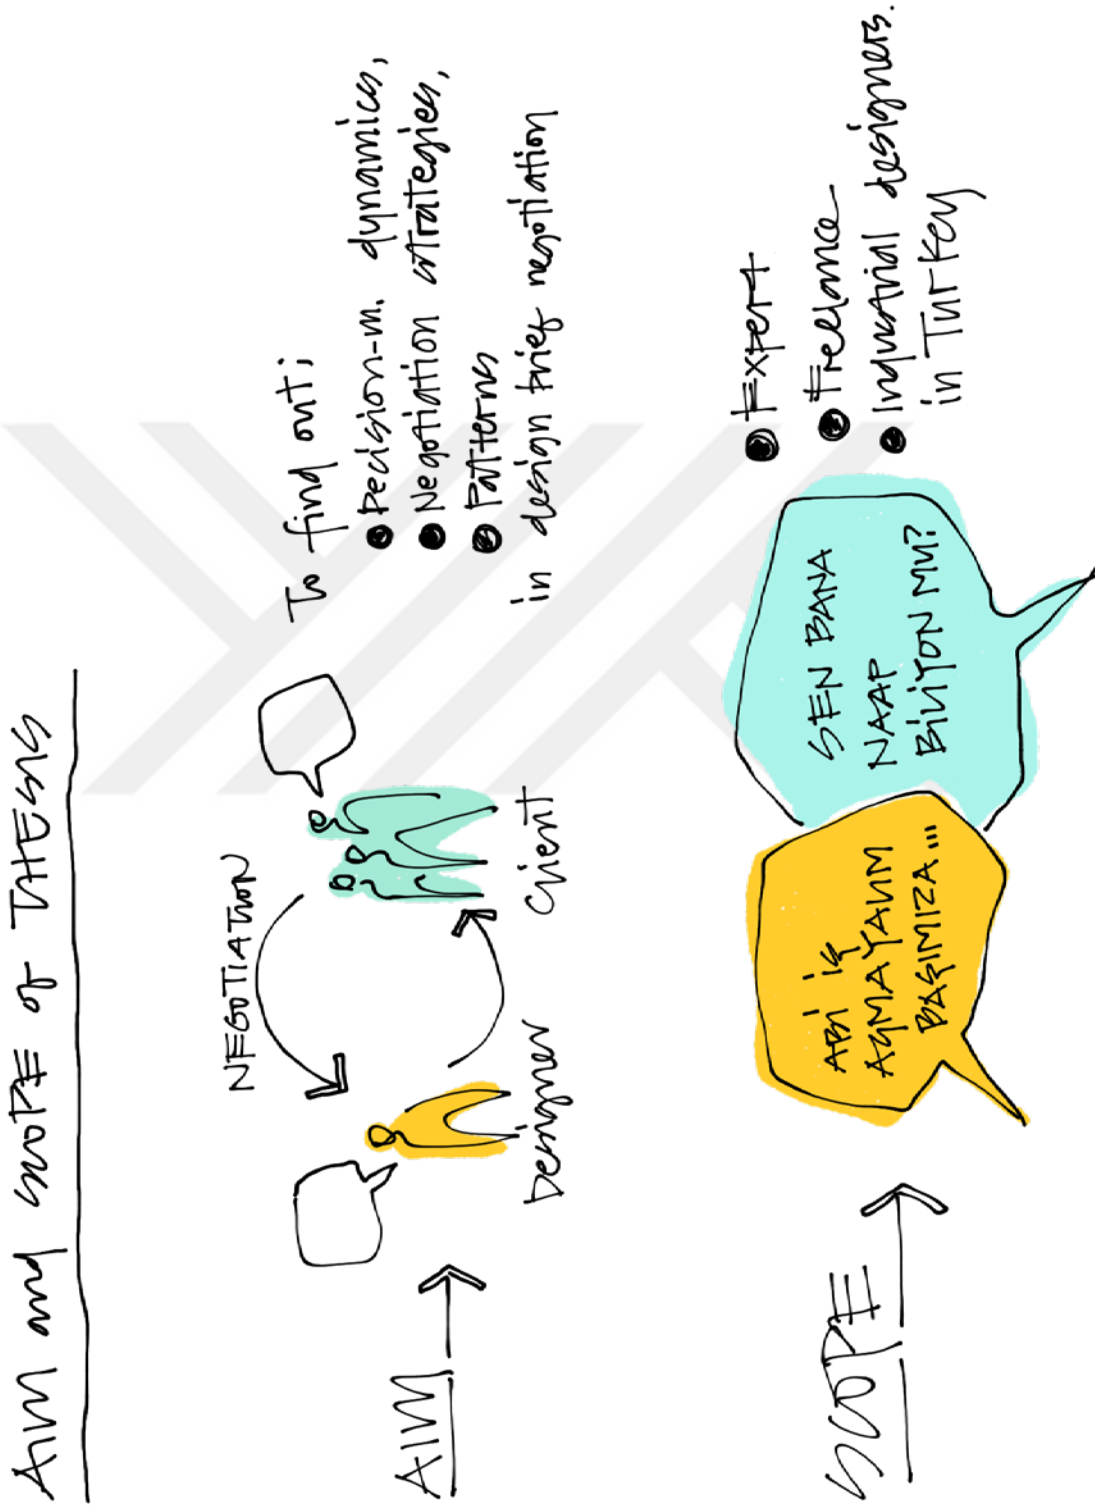 AIM and SCOPE of THESIS
AIM
NEGOTIATION
Designer
Client
To find out;
Decision-m. dynamics,
Negotiation strategies,
Patterns
in design brief negotiation
SCOPE
ABİ İŞ
AÇMAYALIM
BAŞIMIZA...
SEN BANA
NAAP
BİLİYON MU?
Expert
Freelance
Industrial designers.
in Turkey